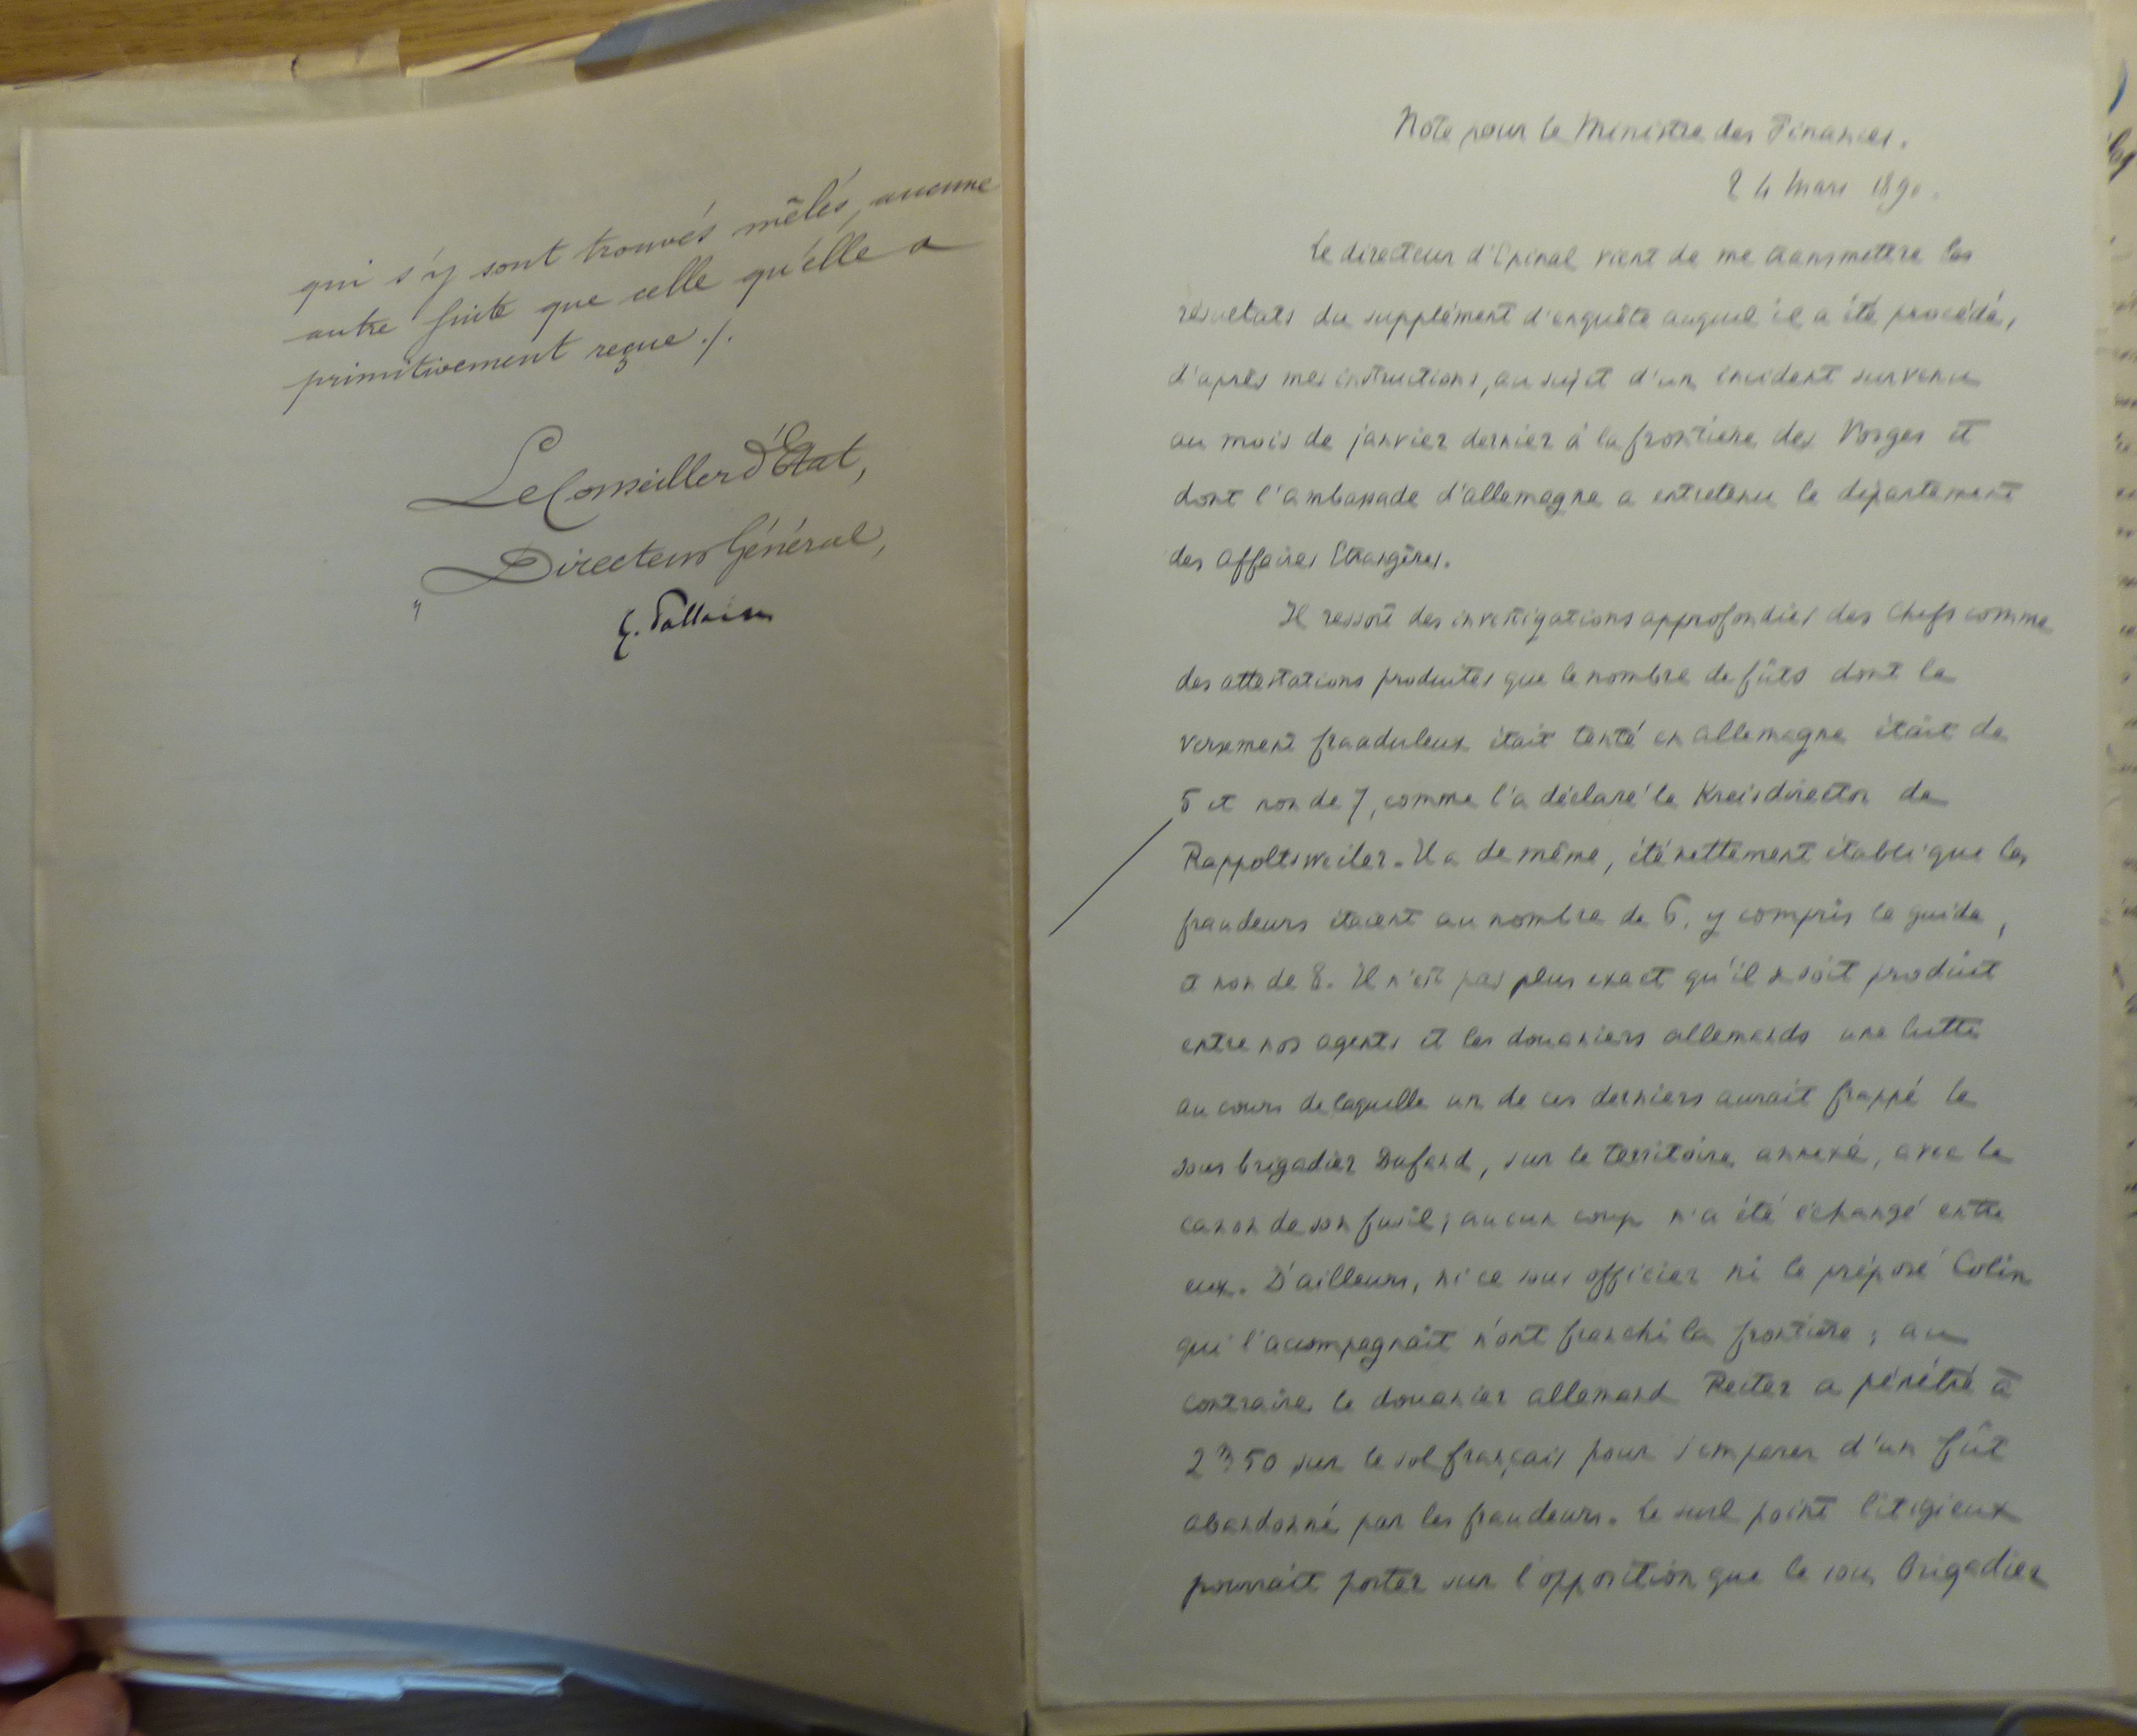 qui s'y sont trouvés mêlés, aucune
autre suite que celle qu'elle a
primitivement reçue ./.
Le Conseiller d'État,
Directeur Général,
G. Pallain
Note pour le Ministre des Finances.
24 Mars 1890.
Le directeur d'Epinal vient de me transmettre les
résultats du supplément d'enquête auquel il a été procédé,
d'après mes instructions, au sujet d'un incident survenu
au mois de janvier dernier à la frontière des Vosges et
dont l'ambassade d'allemagne a entretenu le département
des Affaires Etrangères.
Il ressort des investigations approfondies des Chefs comme
des attestations produites que le nombre de fûts dont le
versement frauduleux était tenté en allemagne était de
5 et non de 7, comme l'a déclaré le Kreisdirector de
Rappoltsweiler. Il a de même, été nettement établi que les
fraudeurs étaient au nombre de 6, y compris le guide,
et non de 8. Il n'est pas plus exact qu'il se soit produit
entre nos agents et les douaniers allemands une lutte
au cours de laquelle un de ces derniers aurait frappé le
sous brigadier Dufand, sur le territoire annexé, avec le
canon de son fusil; aucun coup n'a été échangé entre
eux. D'ailleurs, ni ce sous officier ni le préposé Colin
qui l'accompagnait n'ont franchi la frontière; au
contraire, le douanier allemand Reiter a pénétré à
2m50 sur le sol français pour s'emparer d'un fût
abandonné par les fraudeurs. Le seul point litigieux
pourrait porter sur l'opposition que le sous brigadier